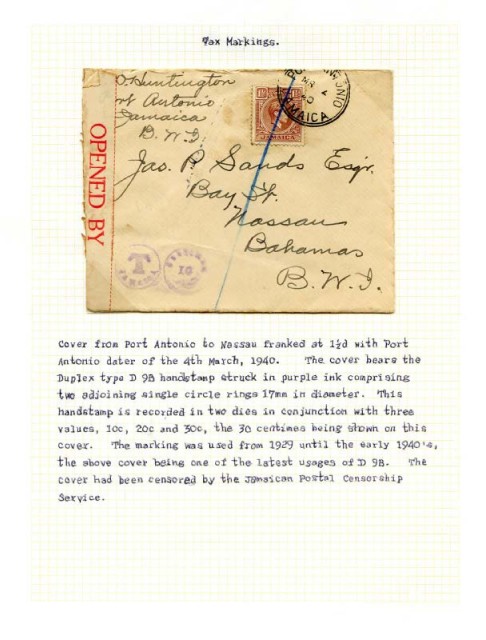 Tax Markings.
Huntington
Antonio
Jamaica
B.W.I.
1½
JAMAICA
MR 4
40
JAMAICA
OPENED BY
Jas. P. Sands Esqr.
Bay St.
Nassau
Bahamas
B.W.I.
T
JAMAICA
CENTIMES
10
Cover from Port Antonio to Nassau franked at 1½d with Port
Antonio dater of the 4th March, 1940. The cover bears the
Duplex type D 9B handstamp struck in purple ink comprising
two adjoining single circle rings 17mm in diameter. This
handstamp is recorded in two dies in conjunction with three
values, 10c, 20c and 30c, the 30 centimes being shown on this
cover. The marking was used from 1929 until the early 1940's,
the above cover being one of the latest usages of D 9B. The
cover had been censored by the Jamaican Postal Censorship
Service.